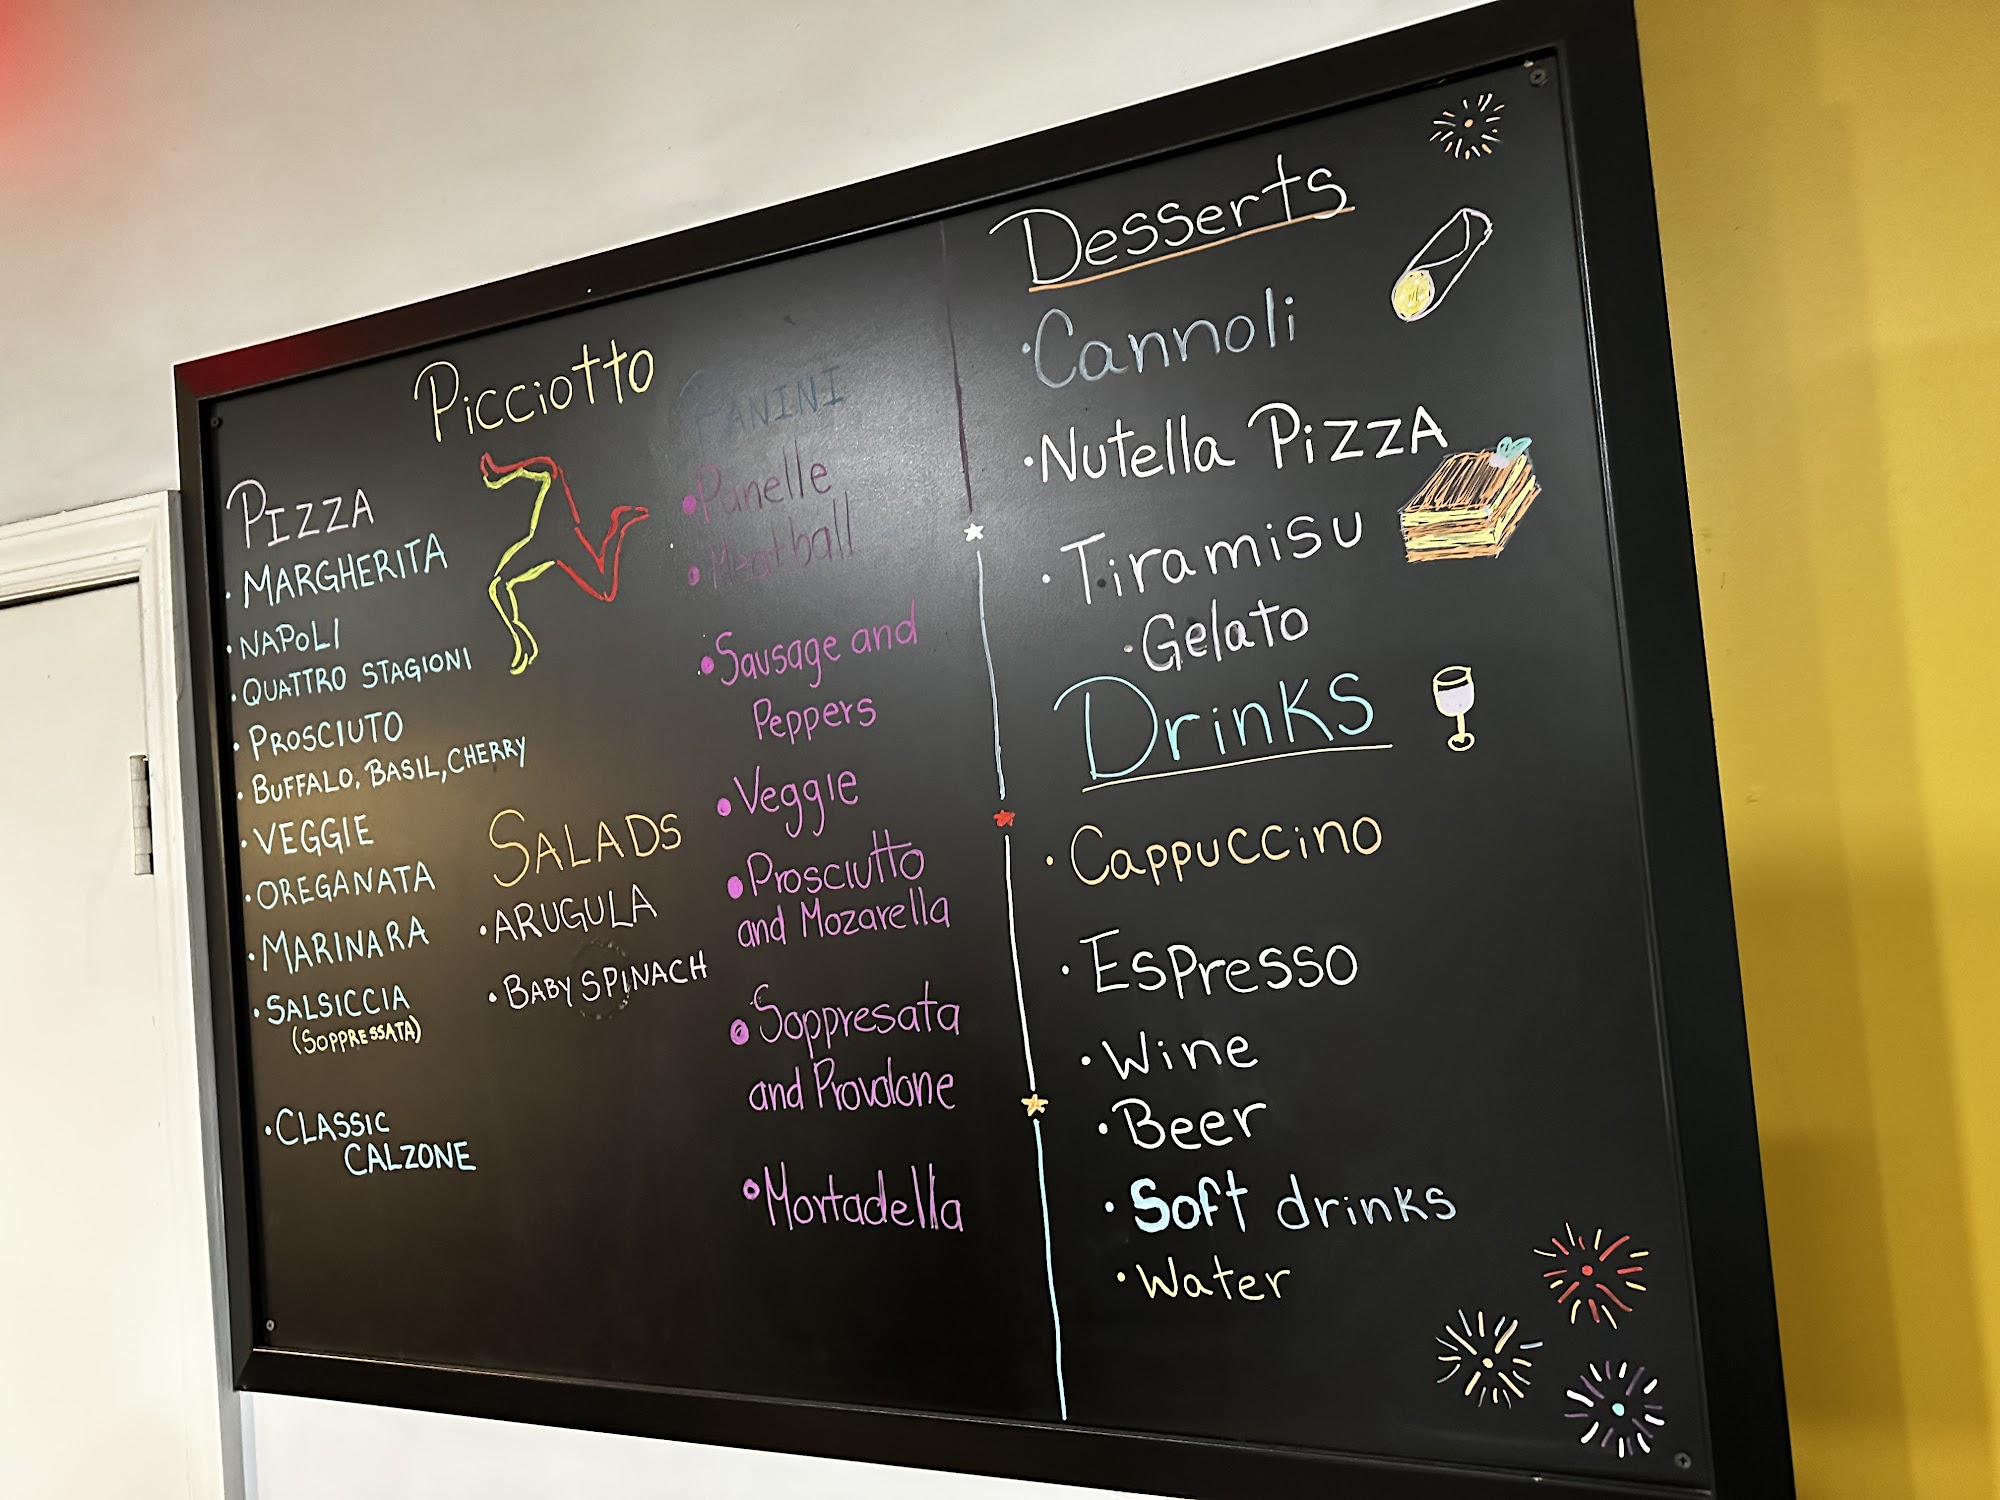 Picciotto
PIZZA
· MARGHERITA
· NAPOLI
· QUATTRO STAGIONI
· PROSCIUTO
· BUFFALO, BASIL, CHERRY
· VEGGIE
· OREGANATA
· MARINARA
· SALSICCIA
(SOPPRESSATA)
· CLASSIC
CALZONE
SALADS
· ARUGULA
· BABY SPINACH
PANINI
• Panelle
• Meatball
• Sausage and
Peppers
• Veggie
• Prosciutto
and Mozarella
• Soppresata
and Provolone
• Mortadella
Desserts
· Cannoli
· Nutella PIZZA
· Tiramisu
· Gelato
Drinks
· Cappuccino
· Espresso
· Wine
· Beer
· Soft drinks
· Water